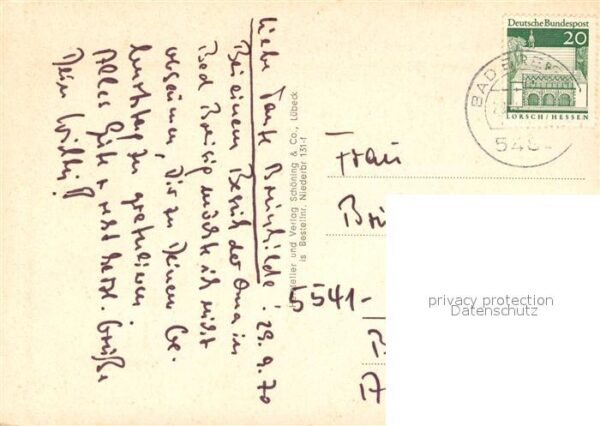 Liebe Tante Brunhilde! 29.9.70
Bei einem Besuch der Oma in
Bad Breisig möchte ich nicht
versäumen, Dir zu Deinem Ge-
burtstag zu gratulieren.
Alles Gute u. recht herzl. Grüße
Dein Willi
Hersteller und Verlag Schöning & Co., Lübeck
is Bestellnr. Niederbr 131-f
Deutsche Bundespost
20
LORSCH/HESSEN
BAD BREI
548
Frau
5541-
privacy protection
Datenschutz